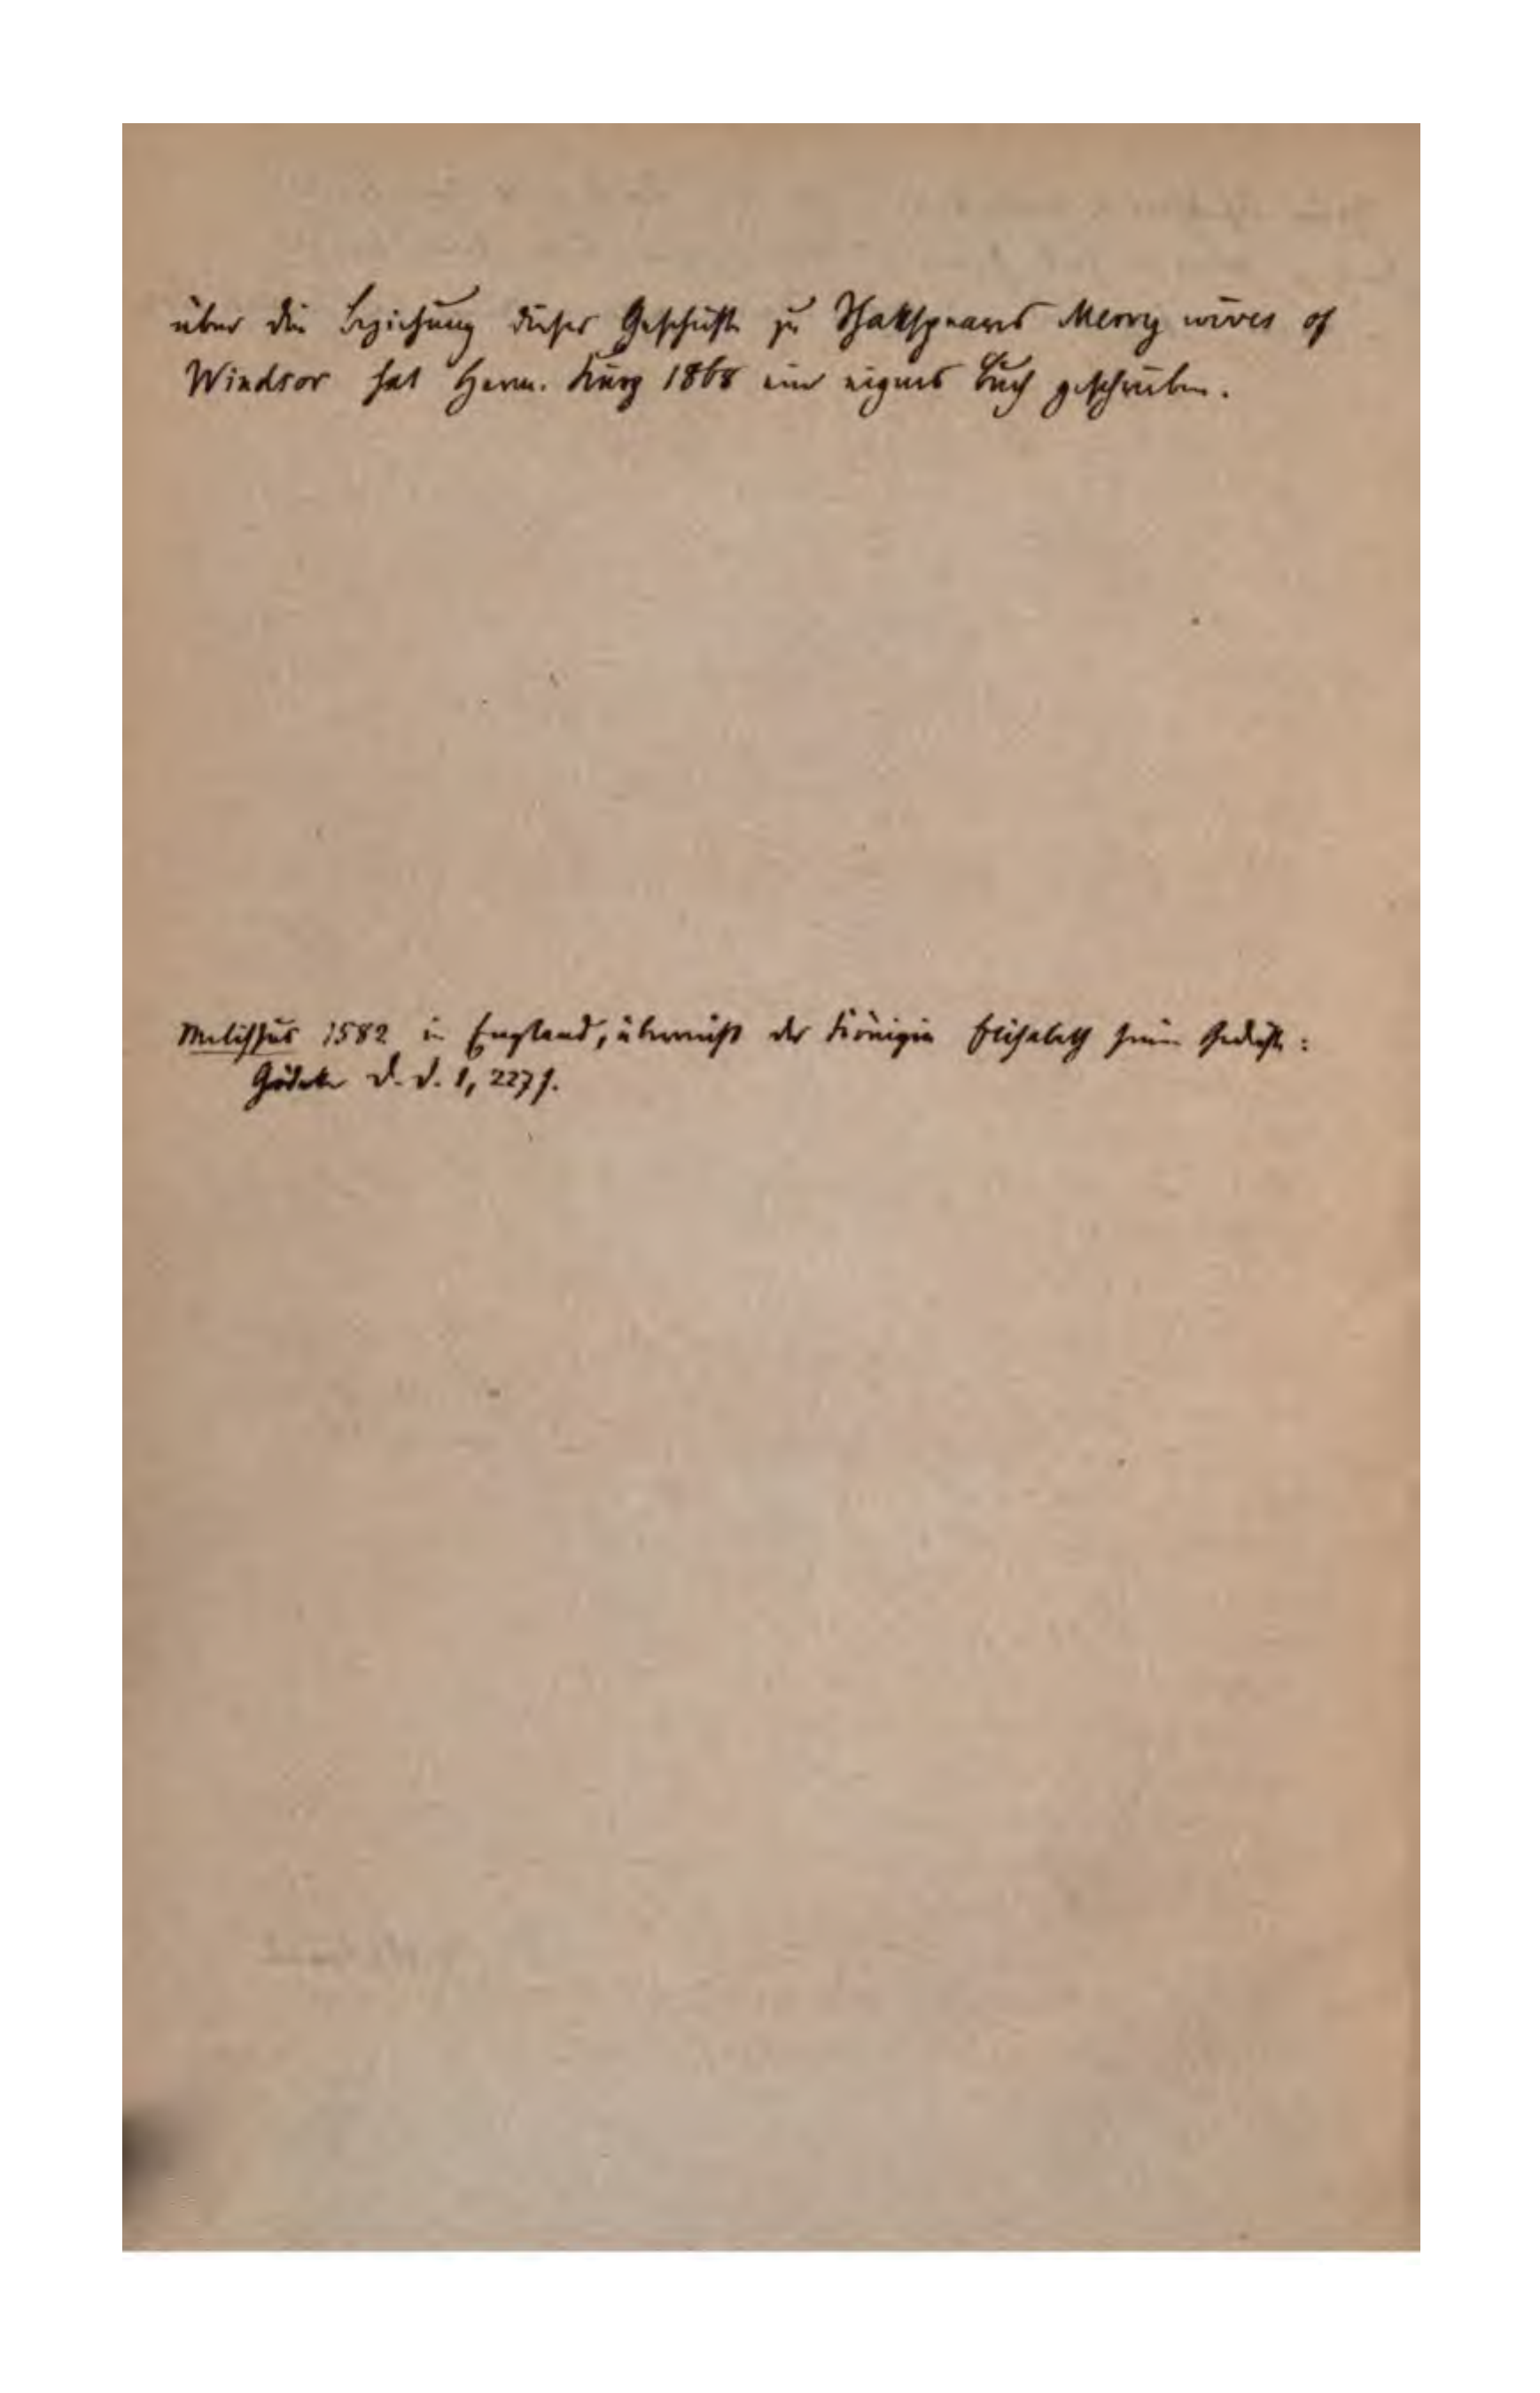 über die Beziehung dieser Geschichte zu Shakspeares Merry wives of
Windsor hat Herm. Kurz 1868 ein eignes Buch geschrieben.
Melissus 1582 in England, überreicht der Königin Elisabeth seine Gedichte:
Gödeke d. d. 1, 227 f.